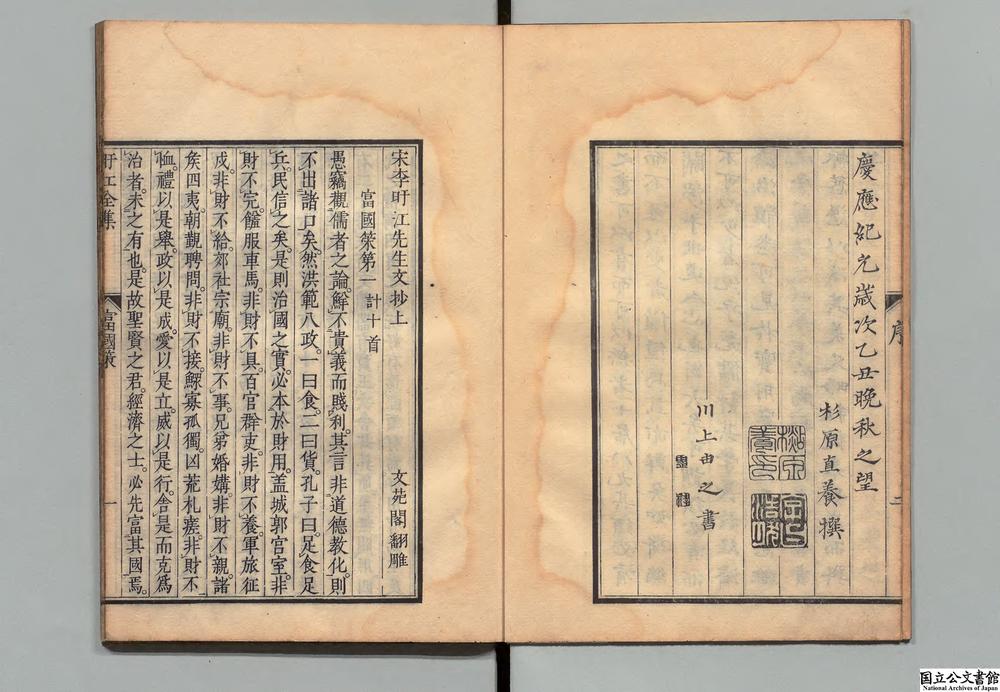 慶應紀元歳次乙丑晩秋之望
杉原直養撰
川上由之書
序
二
宋李旴江先生文抄上
文苑閣翻雕
富國策第一 計十首
愚竊觀儒者之論。鮮不貴義而賤利。其言非道德教化。則
不出諸口矣。然洪範八政。一曰食。二曰貨。孔子曰。足食足
兵。民信之矣。是則治國之實。必本於財用。盖城郭宮室。非
財不完。饈服車馬。非財不具。百官群吏。非財不養。軍旅征
戍。非財不給。郊社宗廟。非財不事。兄弟婚媾。非財不親。諸
矦四夷。朝覲聘問。非財不接。鰥寡孤獨。凶荒札瘥。非財不
恤。禮以是舉。政以是成。愛以是立。威以是行。舍是而克爲
治者。未之有也。是故聖賢之君。經濟之士。必先富其國焉。
旴江全集
富國策
一
国立公文書館
National Archives of Japan